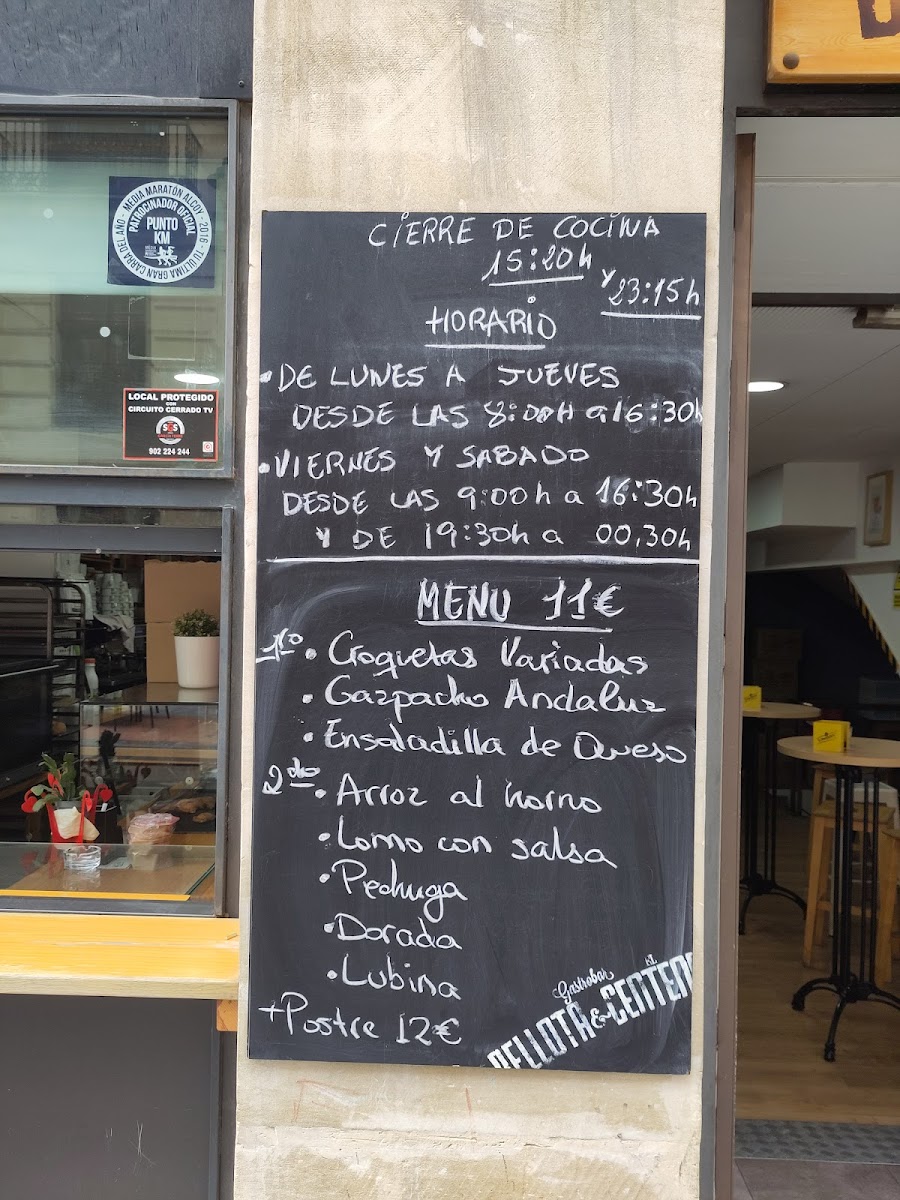 MEDIA MARATÓN ALCOY - 2016 - TU ULTIMA GRAN CARRA DEL AÑO -
PATROCINADOR OFICIAL
PUNTO
KM
LOCAL PROTEGIDO
CON
CIRCUITO CERRADO TV
902 224 244
CIERRE DE COCINA
15:20h
Y 23:15h
HORARIO
• DE LUNES A JUEVES
DESDE LAS 8:00H a 16:30h
• VIERNES Y SABADO
DESDE LAS 9:00h a 16:30h
Y DE 19:30h a 00,30h
MENU 11€
1ro • Croquetas Variadas
• Gazpacho Andaluz
• Ensaladilla de Queso
2do • Arroz al horno
• Lomo con salsa
• Pechuga
• Dorada
• Lubina
+Postre 12€
Gastrobar
BELLOTA & CENTENO